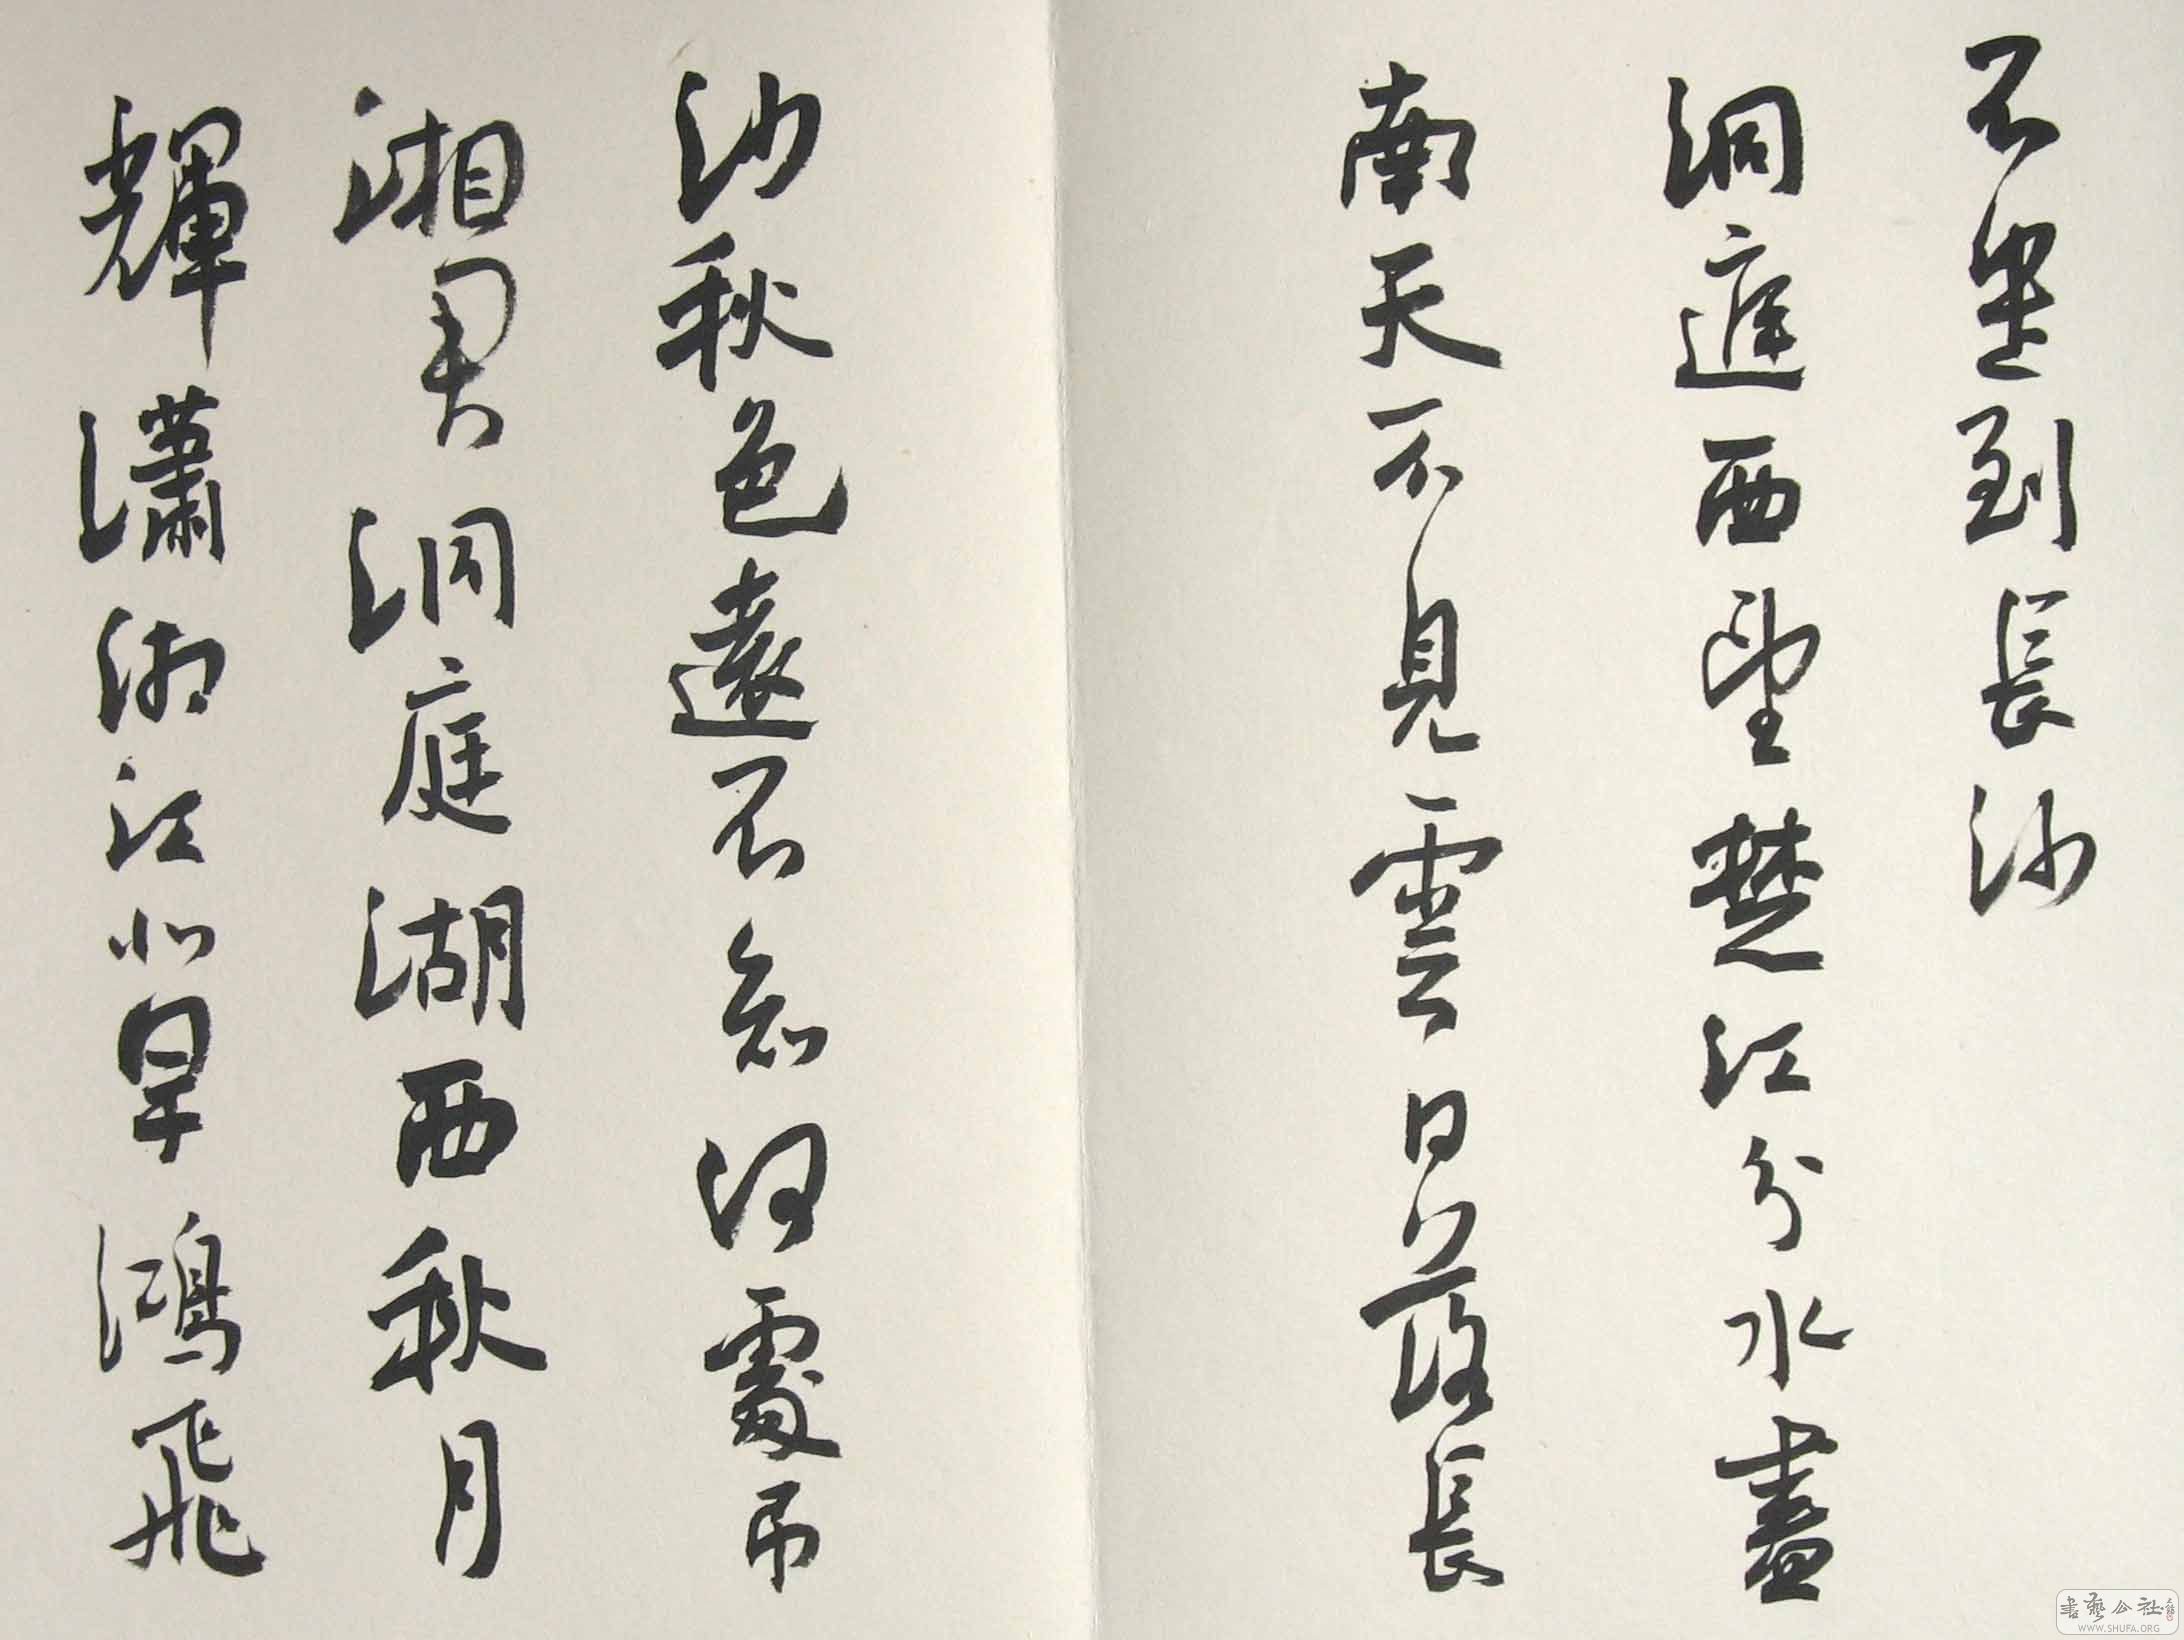 不遣到長沙
洞庭西望楚江分水盡
南天不見雲日落長
沙秋色遠不知何處弔
湘君 洞庭湖西秋月
輝瀟湘江北早鴻飛
書藝公社
WWW.SHUFA.ORG